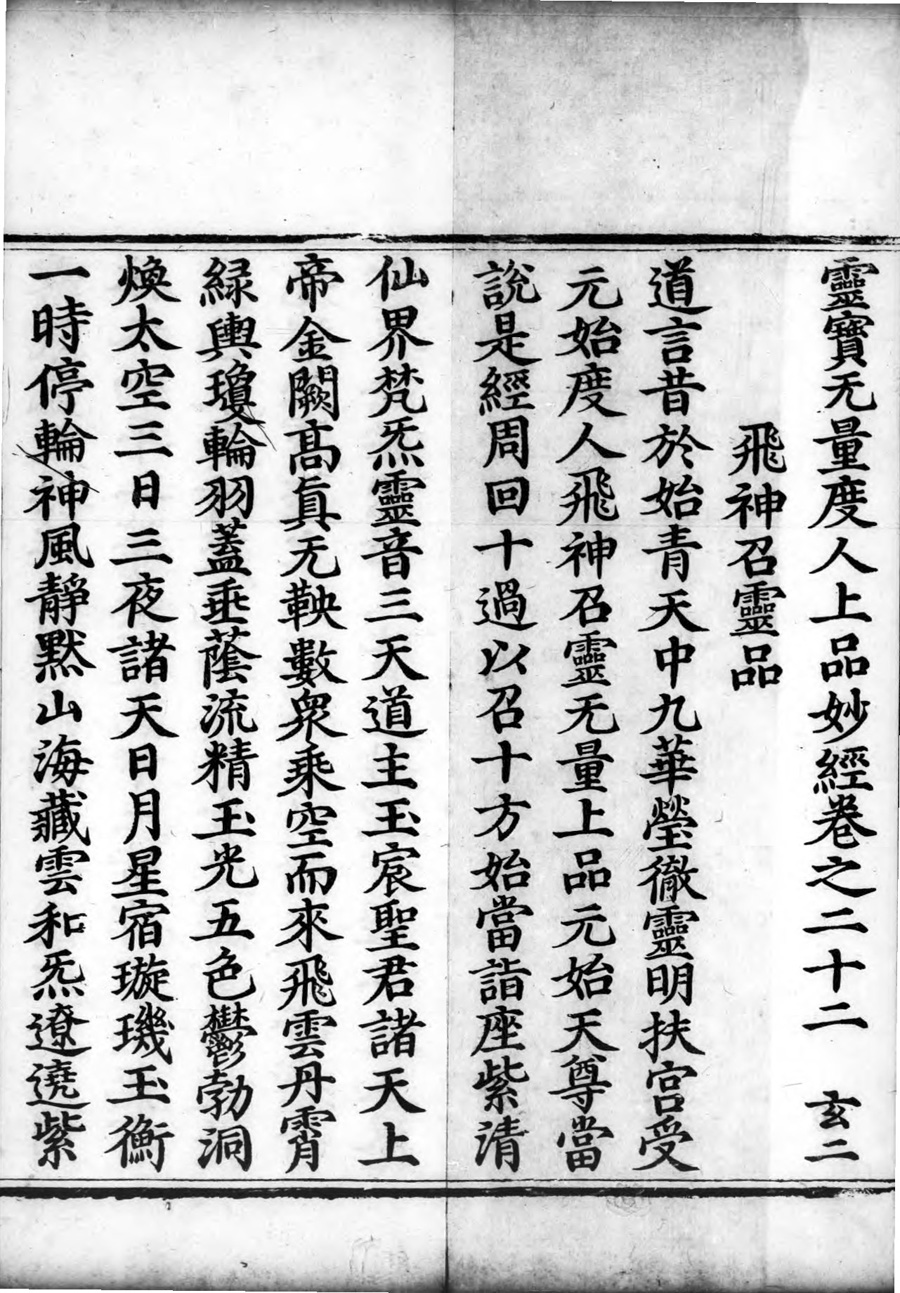 靈寶无量度人上品妙經卷之二十二　玄二
飛神召靈品
道言昔於始青天中九華瑩徹靈明扶宫受
元始度人飛神召靈无量上品元始天尊當
說是經周回十過以召十方始當詣座紫清
仙界梵炁靈音三天道主玉宸聖君諸天上
帝金闕髙真无鞅數衆乘空而來飛雲丹霄
緑輿瓊輪羽蓋垂蔭流精玉光五色鬱勃洞
煥太空三日三夜諸天日月星宿璇璣玉衡
一時停輪神風靜默山海藏雲和炁遼遶紫